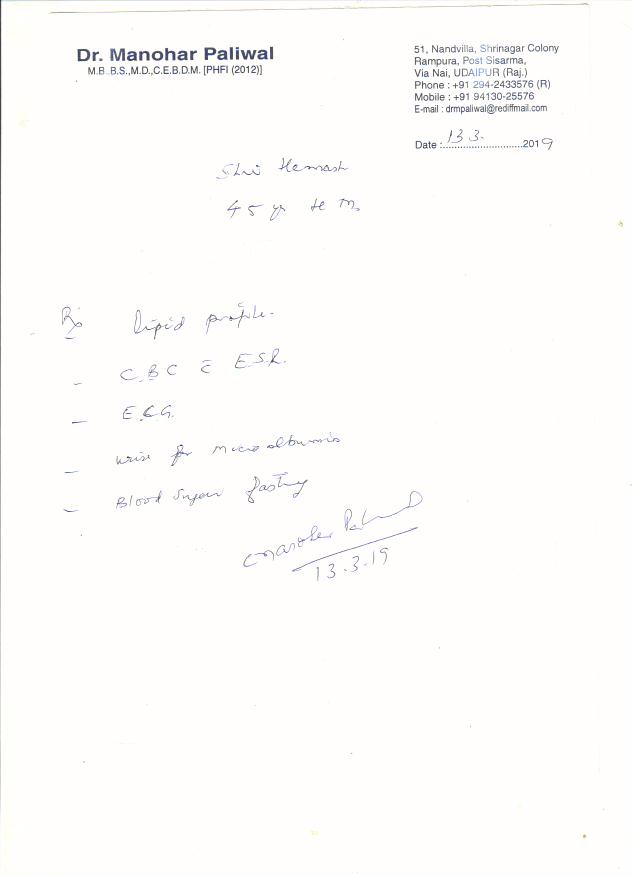 Dr. Manohar Paliwal
M.B.,B.S.,M.D.,C.E.B.D.M. [PHFI (2012)]
51, Nandvilla, Shrinagar Colony
Rampura, Post Sisarma,
Via Nai, UDAIPUR (Raj.)
Phone : +91 294-2433576 (R)
Mobile : +91 94130-25576
E-mail : drmpaliwal@rediffmail.com
Date : 13.3. 2019
Shri
45 yr M.
Rx Lipid profile.
- C.B.C c̄ E.S.R.
- E.C.G.
- Urine for Microalbumin
- Blood Sugar fasting
Manohar Paliwal
13.3.19